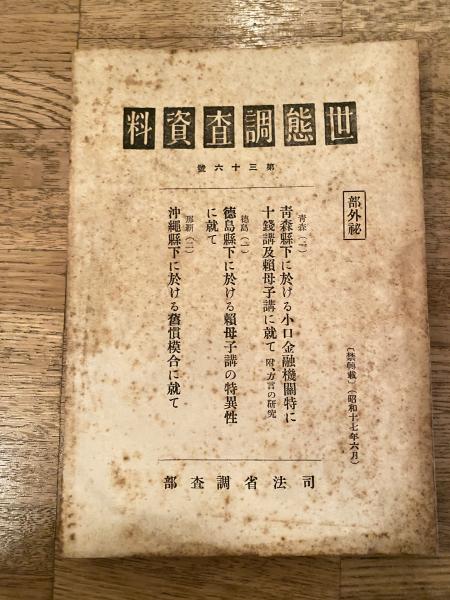 世態調査資料
第三十六號
部外祕
(禁轉載)(昭和十七年六月)
靑森(二)
靑森縣下に於ける小口金融機關特に
十錢講及賴母子講に就て 附、方言の硏究
德島(一)
德島縣下に於ける賴母子講の特異性
に就て
那覇(二)
沖繩縣下に於ける舊慣模合に就て
司法省調査部